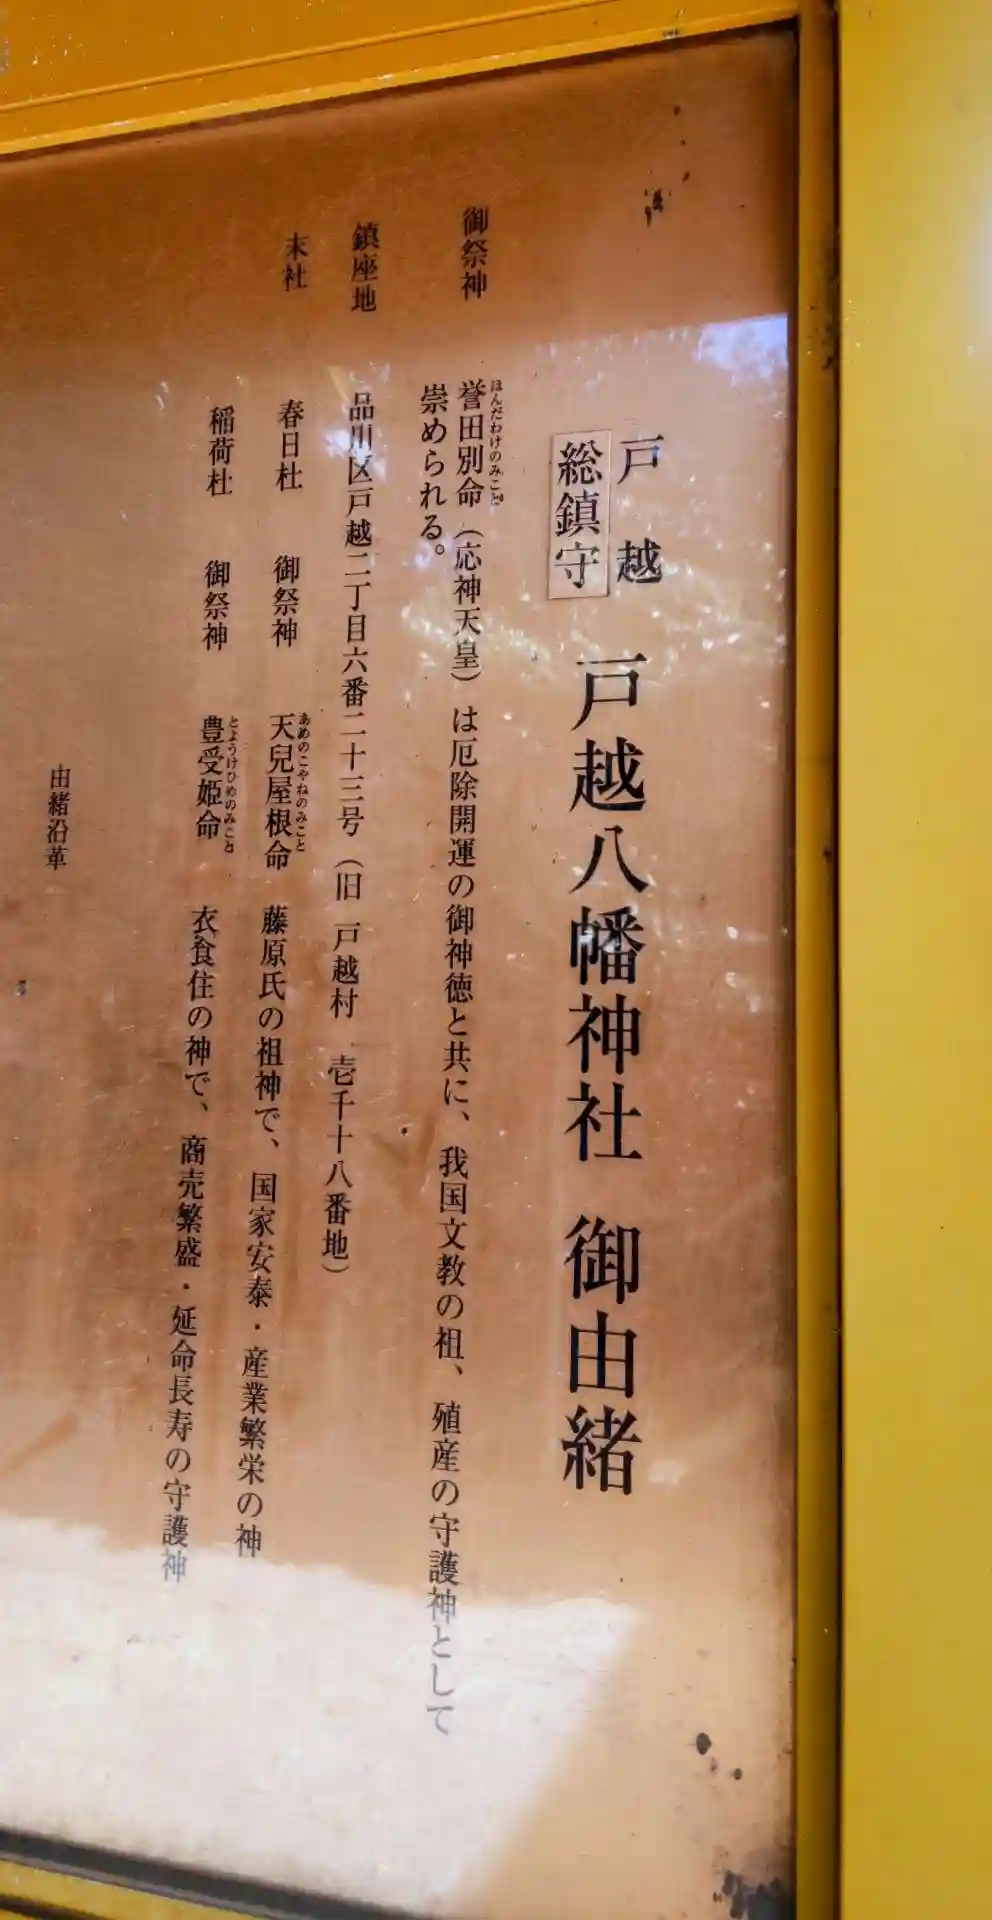 戸越
総鎮守
戸越八幡神社 御由緒
御祭神 誉田別命（応神天皇）は厄除開運の御神徳と共に、我国文教の祖、殖産の守護神として
ほんだわけのみこと
崇められる。
鎮座地 品川区戸越二丁目六番二十三号（旧 戸越村 壱千十八番地）
末社 春日社 御祭神 天兒屋根命 藤原氏の祖神で、国家安泰・産業繁栄の神
あめのこやねのみこと
稲荷社 御祭神 豊受姫命 衣食住の神で、商売繁盛・延命長寿の守護神
とようけひめのみこと
由緒沿革